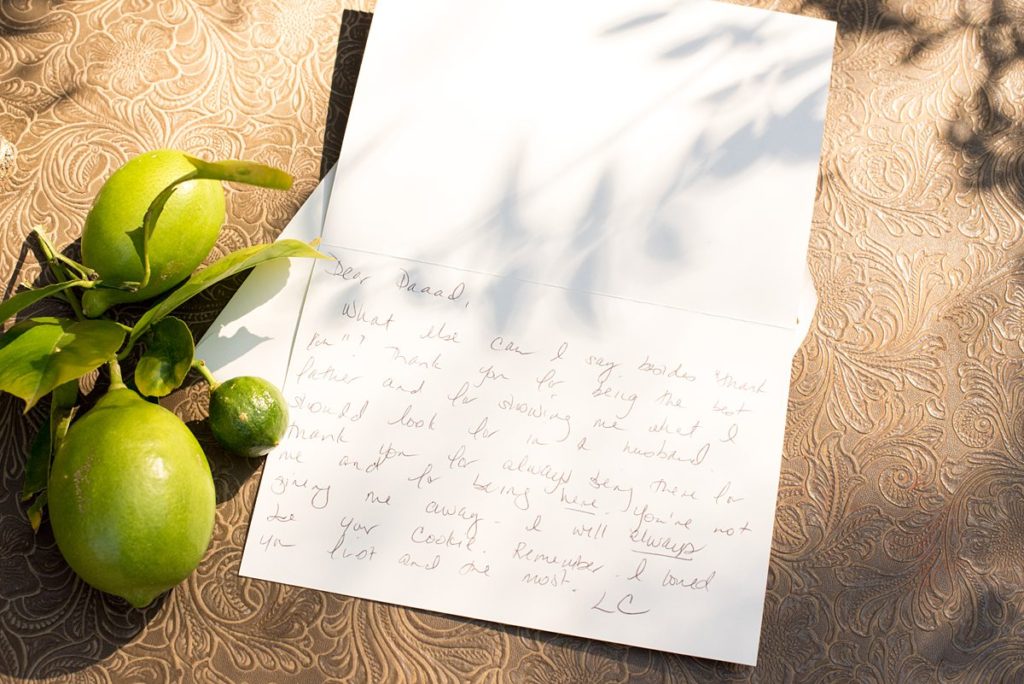 Dear Daaad,
What else can I say besides "thank
you"? Thank you for being the best
father and for showing me what I
should look for in a husband.
Thank you for always being there for
me and for being here. You're not
giving me away. I will always
be your Cookie. Remember. I loved
you first and me most.
LC